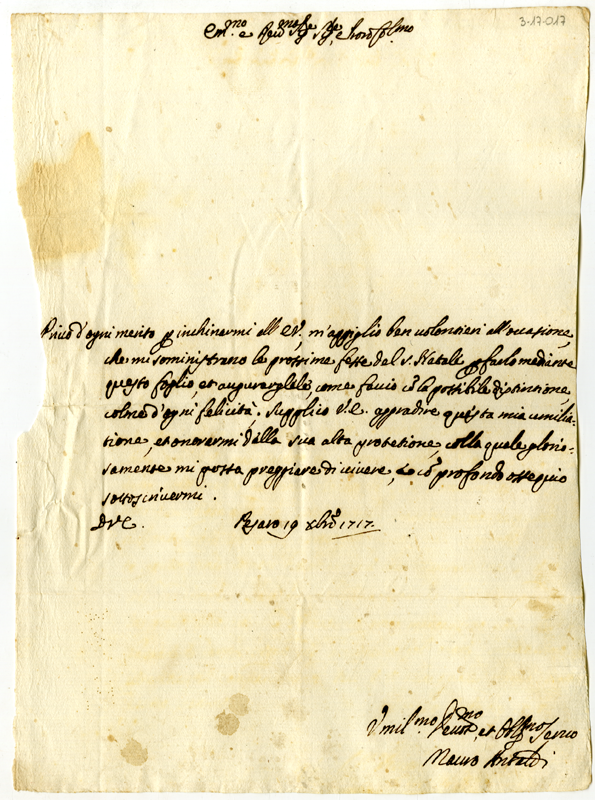 3-17-017
Em.mo e Reu.mo Sig.re Sig.re, e Pron Col.mo
Priuo d'ogni merito p inchinarmi all'E.V., m'appiglio ben uolentieri all'occasione,
che mi soministrano le prossime feste del S. Natale p farlo mediante
questo foglio, et augurarglele, come faccio cõ la possibile distintione,
colme d'ogni felicità. Supplico V.E. aggradire questa mia umilia-
tione, et onorarmi della sua alta protetione, colla quale glorio-
samente mi possa preggiare di uiuere, e cõ profondo ossequio
sottoscriuermi.
D.V.E. Pesaro 19 Xbre 1717.
Vmil.mo Deuot.mo, et Obl.mo Seruo
Mauro